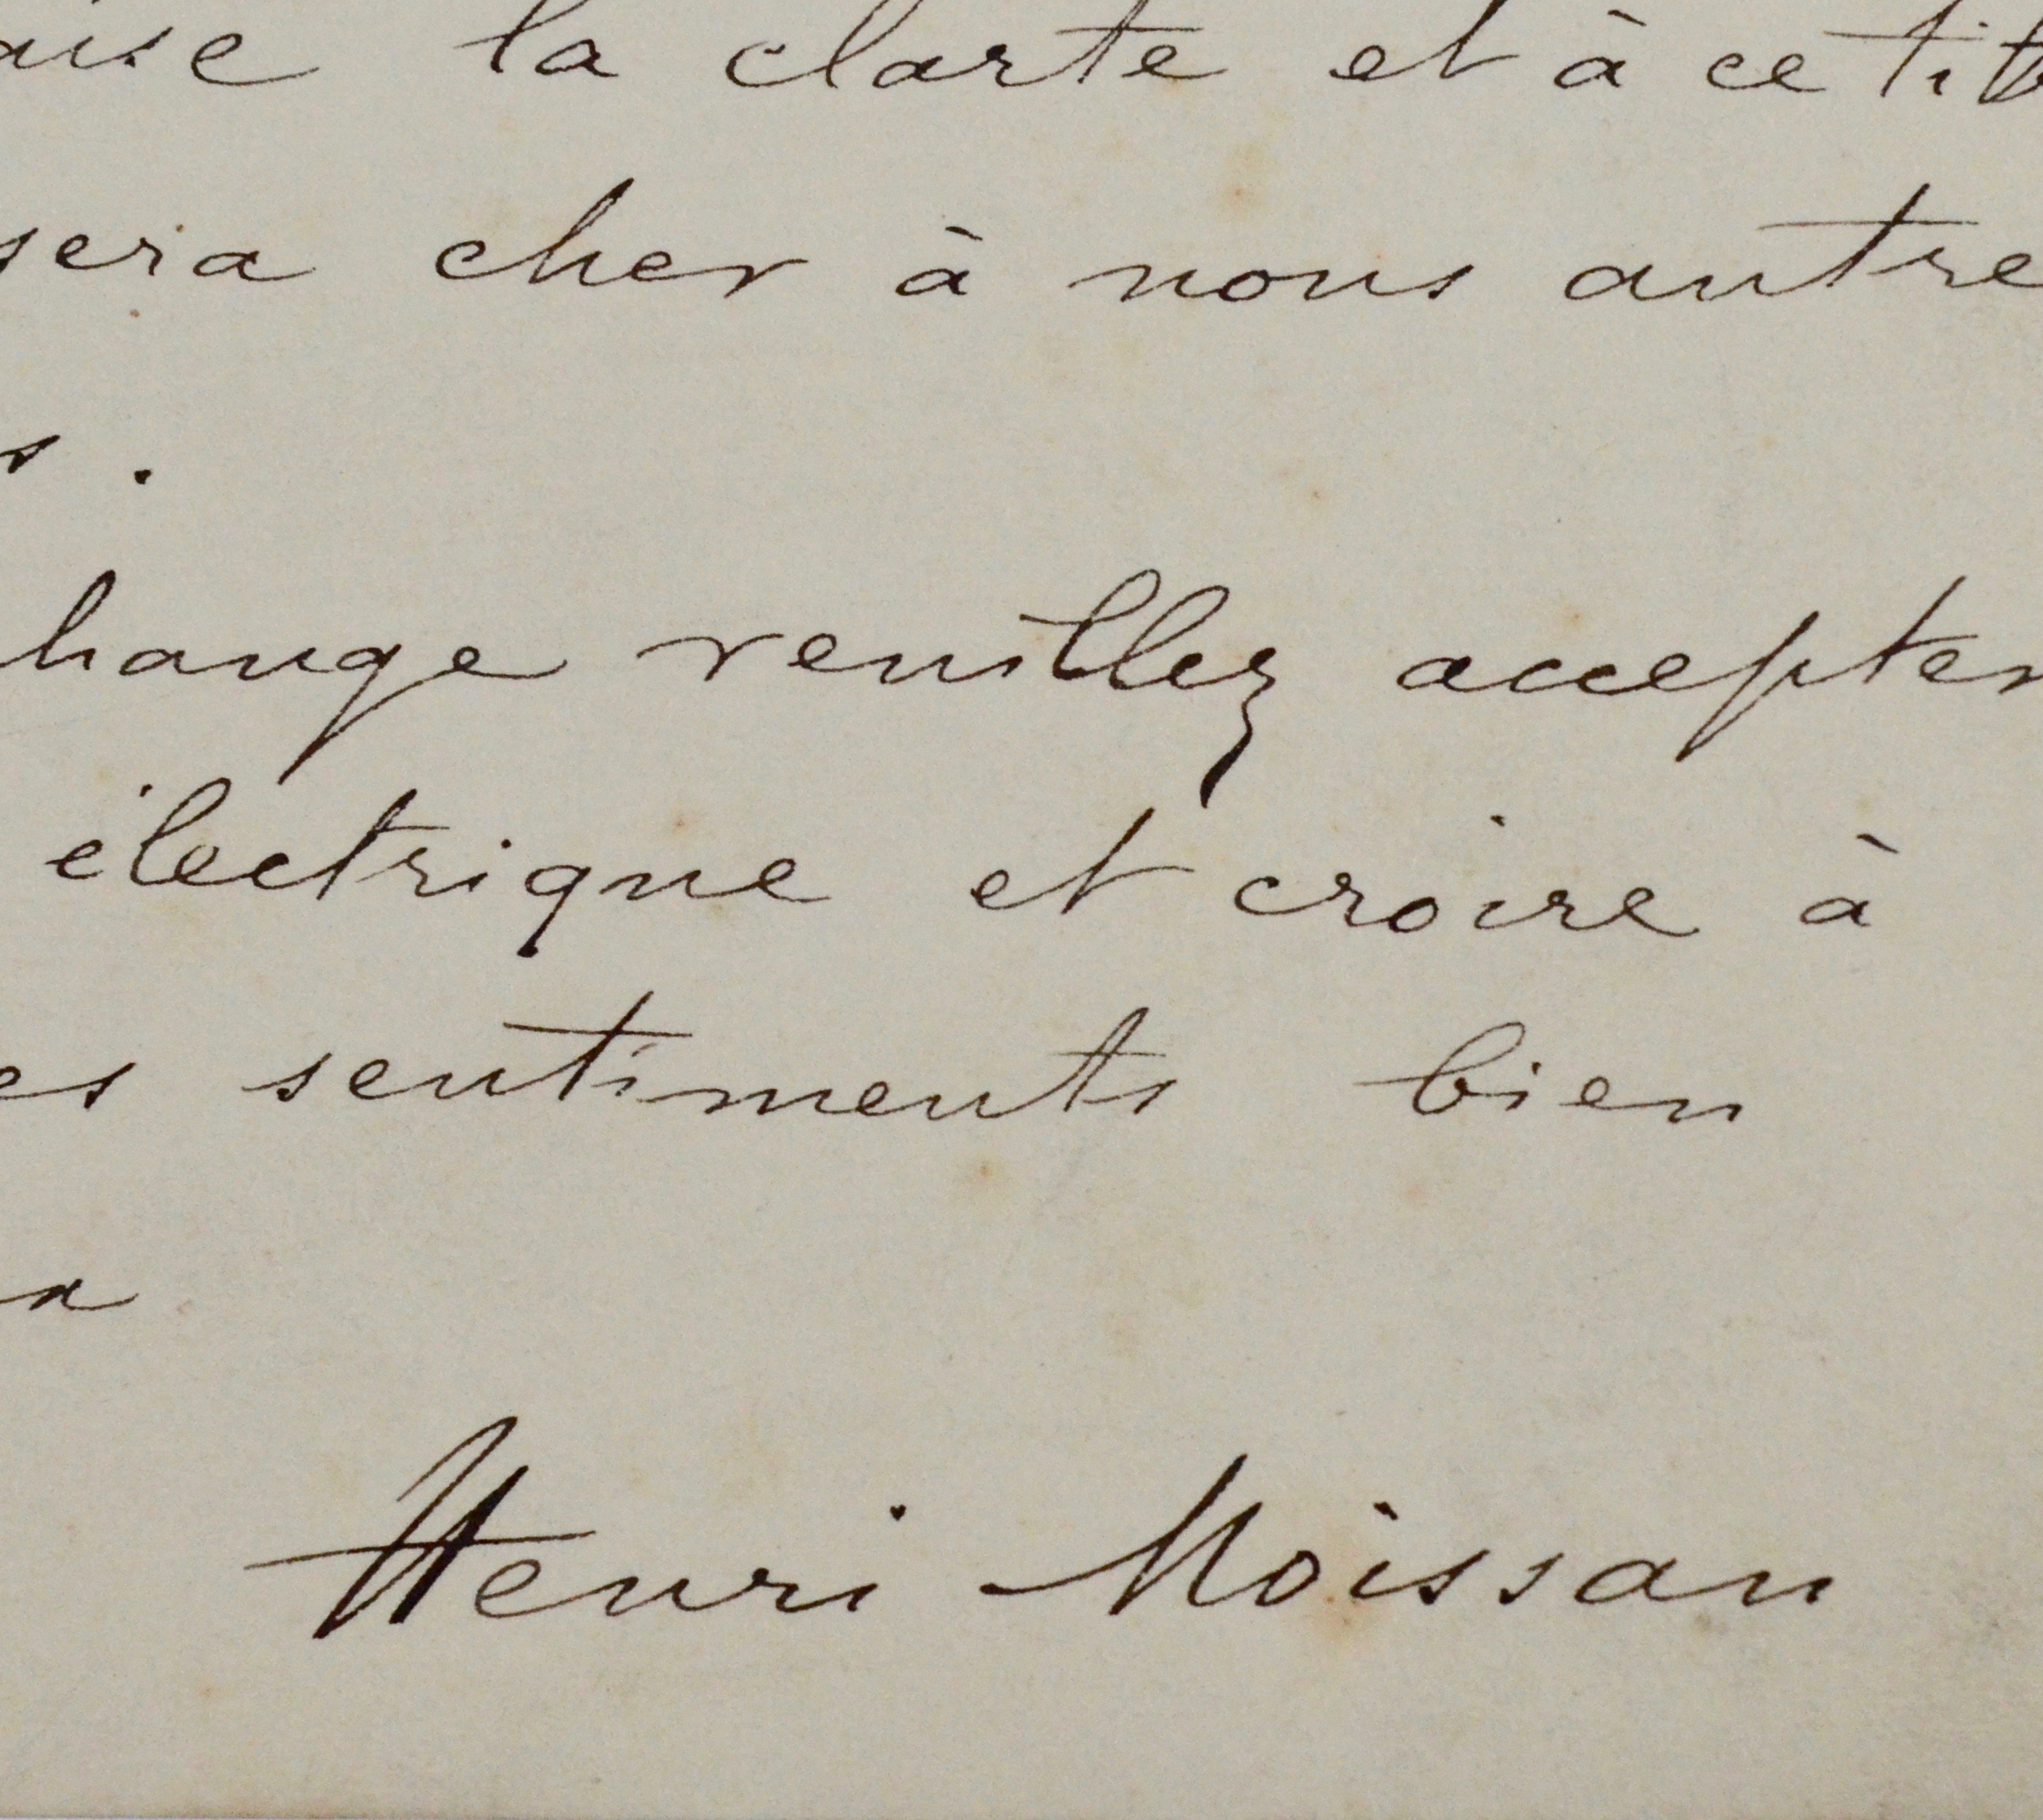 aise la clarte et à ce tit
sera cher à nous autre
s.
hange veuillez accepter
électrique et croire à
es sentiments bien
x
Henri Moissan